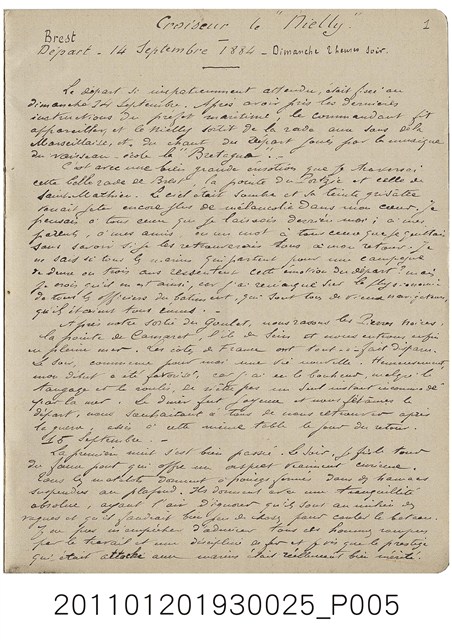 Croiseur le "Nielly"
1
Brest
Départ - 14 Septembre 1884 - Dimanche 2 heures soir.
Le départ si impatiemment attendu, était fixé au
dimanche 14 Septembre. Après avoir pris les dernières
instructions du préfet maritime, le commandant fit
appareiller, et le Nielly sortit de la rade aux sons de la
Marseillaise, et du chant du Départ joués par la musique
du vaisseau-école la "Bretagne".
C'est avec une bien grande émotion que je traversai
cette belle rade de Brest, la pointe du Portzic et celle de
Saint-Mathieu. Le ciel était sombre et sa teinte grisâtre
jeter encore plus de mélancolie dans mon cœur. Je
pensais à tous ceux que je laissais derrière moi ; à mes
parents, à mes amis, en un mot à tous ceux que je quittais
sans savoir si je les retrouverais tous à mon retour. Je
ne sais si tous les marins qui partent pour une campagne
de deux ou trois ans ressentent cette émotion du départ ? mais
je crois qu'il en est ainsi, car j'ai remarqué sur les physionomies
de tous les officiers du bâtiment, qui sont tous de vieux navigateurs,
qu'ils étaient tous émus. -
Après notre sortie du Goulet, nous rasons les Pierres Noires,
la pointe de Camaret, l'île de Sein, et nous entrons enfin
en pleine mer. Les côtes de France ont tout-à-fait disparu.
Le soir, commence pour moi une vie nouvelle. Heureusement
mon début a été favorable, car j'ai eu le bonheur, malgré le
tangage et le roulis, de n'être pas un seul instant incommodé
par la mer. Le dîner fut joyeux et nous fêtâmes le
départ, nous souhaitant à tous de nous retrouver après
la guerre, assis à cette même table le jour du retour.
15 Septembre. -
La première nuit s'est bien passée. Le soir, je fis le tour
du faux pont qui offre un aspect vraiment curieux.
Tous les matelots dorment à poings fermés dans des hamacs
suspendus au plafond. Ils dorment avec une tranquillité
absolue, ayant l'air d'ignorer qu'ils sont au milieu des
vagues et qu'il faudrait bien peu de chose pour couler le bateau.
tous ces hommes rompus
par le travail et une discipline de fer et je vois que le prestige
qui était attaché aux marins était réellement bien mérité
201101201930025_P005